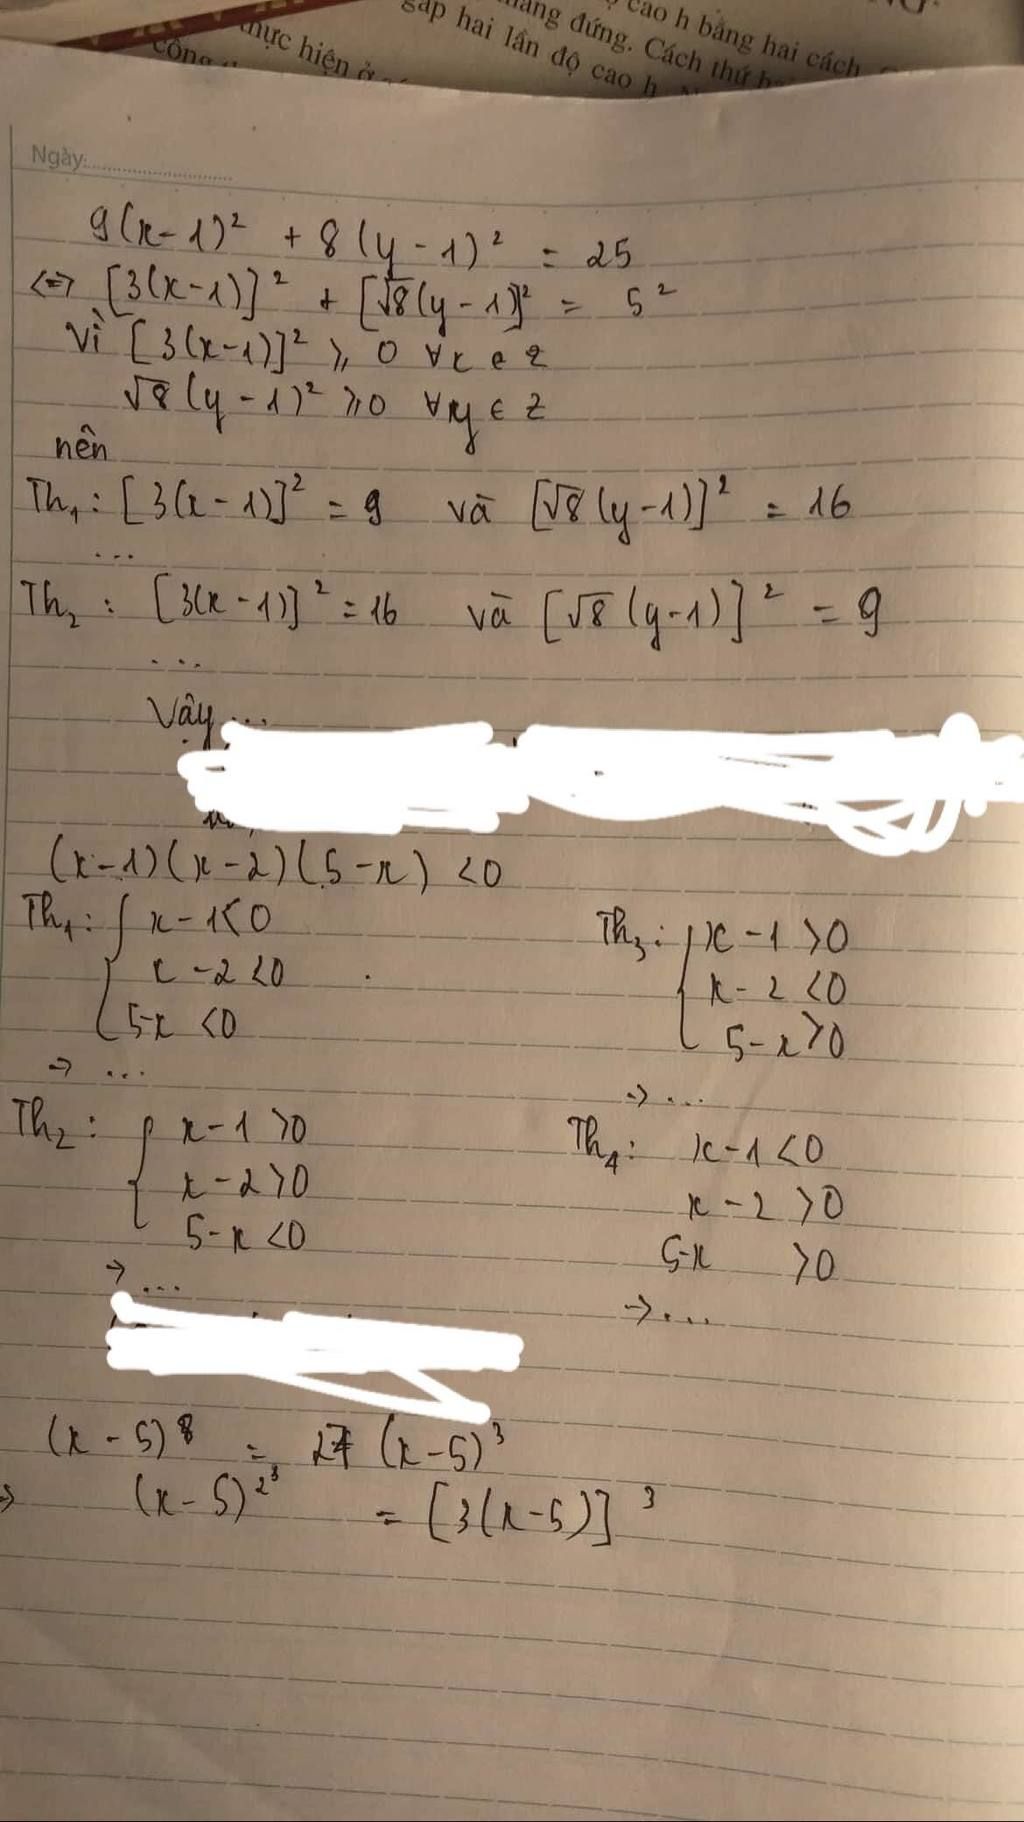 cao h bằng hai cách
thẳng đứng. Cách thứ
gấp hai lần độ cao h
thực hiện ở
công
Ngày:
9(x-1)² + 8(y-1)² = 25
<=> [3(x-1)]² + [√8(y-1)]² = 5²
Vì [3(x-1)]² ≥ 0 ∀x ∈ Z
√8(y-1)² ≥ 0 ∀y ∈ Z
nên
Th₁: [3(x-1)]² = 9 và [√8(y-1)]² = 16
...
Th₂: [3(x-1)]² = 16 và [√8(y-1)]² = 9
...
Vậy ...
(x-1)(x-2)(5-x) < 0
Th₁: { x-1 < 0
x-2 < 0
5-x < 0
-> ...
Th₂: { x-1 > 0
x-2 > 0
5-x < 0
-> ...
Th₃: { x-1 > 0
x-2 < 0
5-x > 0
-> ...
Th₄: x-1 < 0
x-2 > 0
5-x > 0
-> ...
(x-5)⁸ = 27 (x-5)³
=> (x-5)²³ = [3(x-5)]³